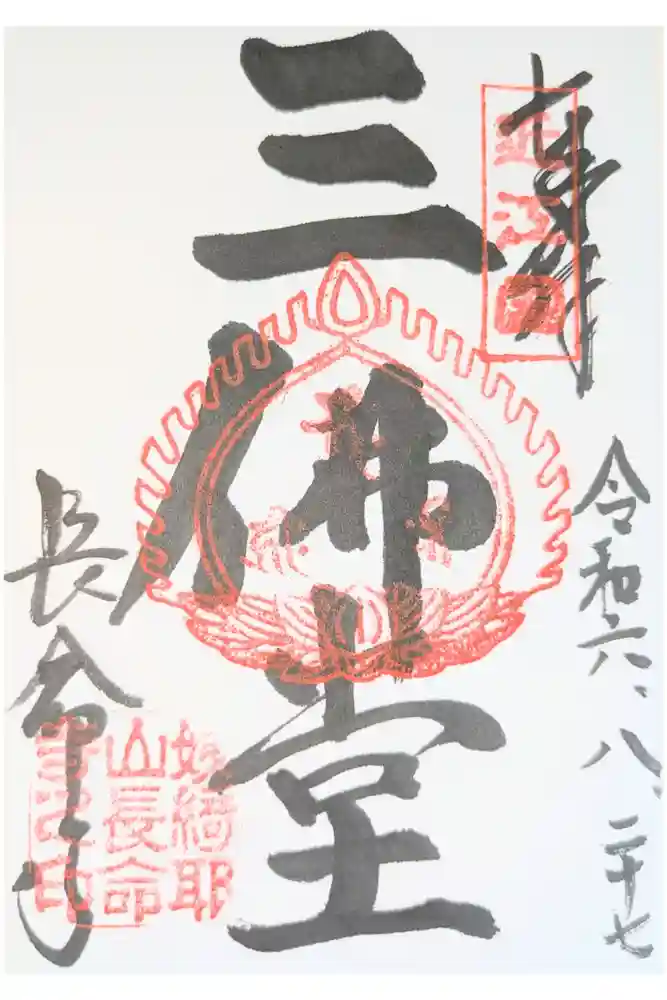 奉拝
近江國
令和六、八、二十七
三佛堂
長命寺
姨綺耶
山長命
寺之印